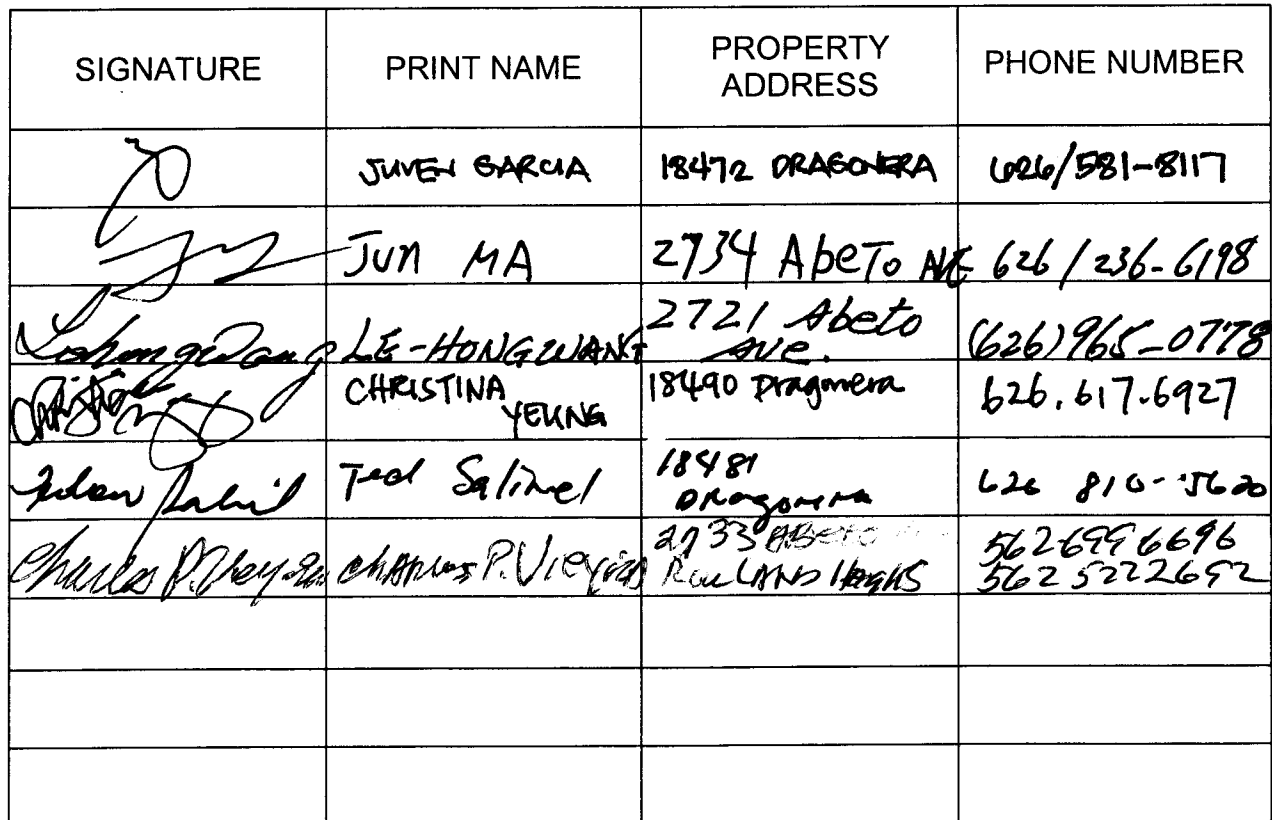 SIGNATURE
PRINT NAME
PROPERTY
ADDRESS
PHONE NUMBER
JUVEN GARCIA
18472 DRAGONERA
626/581-8117
Jun MA
2734 Abeto Ave
626/236-6198
LE-HONG WANG
2721 Abeto
Ave.
(626)965-0778
CHRISTINA
YEUNG
18490 Dragonera
626.617.6927
Ted
18481
Dragonera
626 810-5620
Charles P.
Charles P.
2733 Abeto
Rowland Heights
5626996696
5625222692